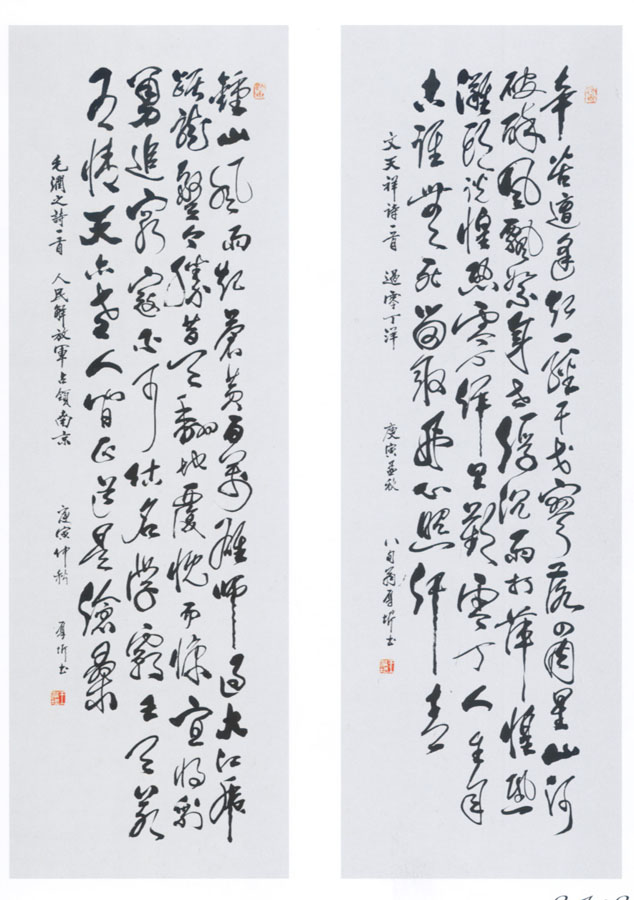 辛苦遭逢起一經干戈寥落四周星山河
破碎風飄絮身世浮沉雨打萍惶恐
灘頭説惶恐零丁洋里歎零丁人生自
古誰無死留取丹心照汗青
文天祥詩一首 過零丁洋 庚寅孟秋 八旬翁 书
鍾山風雨起蒼黄百萬雄師過大江虎
踞龍盤今勝昔天翻地覆慨而慷宜將剩
勇追窮寇不可沽名學霸王天若
有情天亦老人間正道是滄桑
毛潤之詩一首 人民解放軍占領南京 庚寅仲秋 书